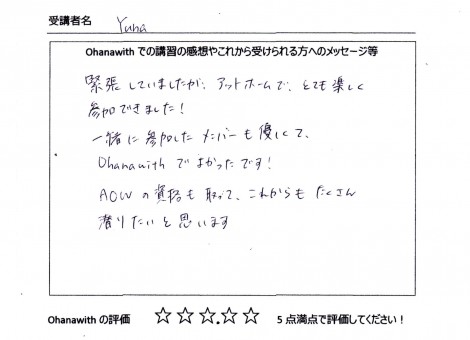 受講者名 Yuna
Ohanawith での講習の感想やこれから受けられる方へのメッセージ等
緊張していましたが、アットホームで、とても楽しく
参加できました！
一緒に参加したメンバーも優しくて、
Ohanawith でよかったです！
AOW の資格も取って、これからもたくさん
潜りたいと思います
Ohanawith の評価 ☆☆☆.☆☆ 5 点満点で評価してください！